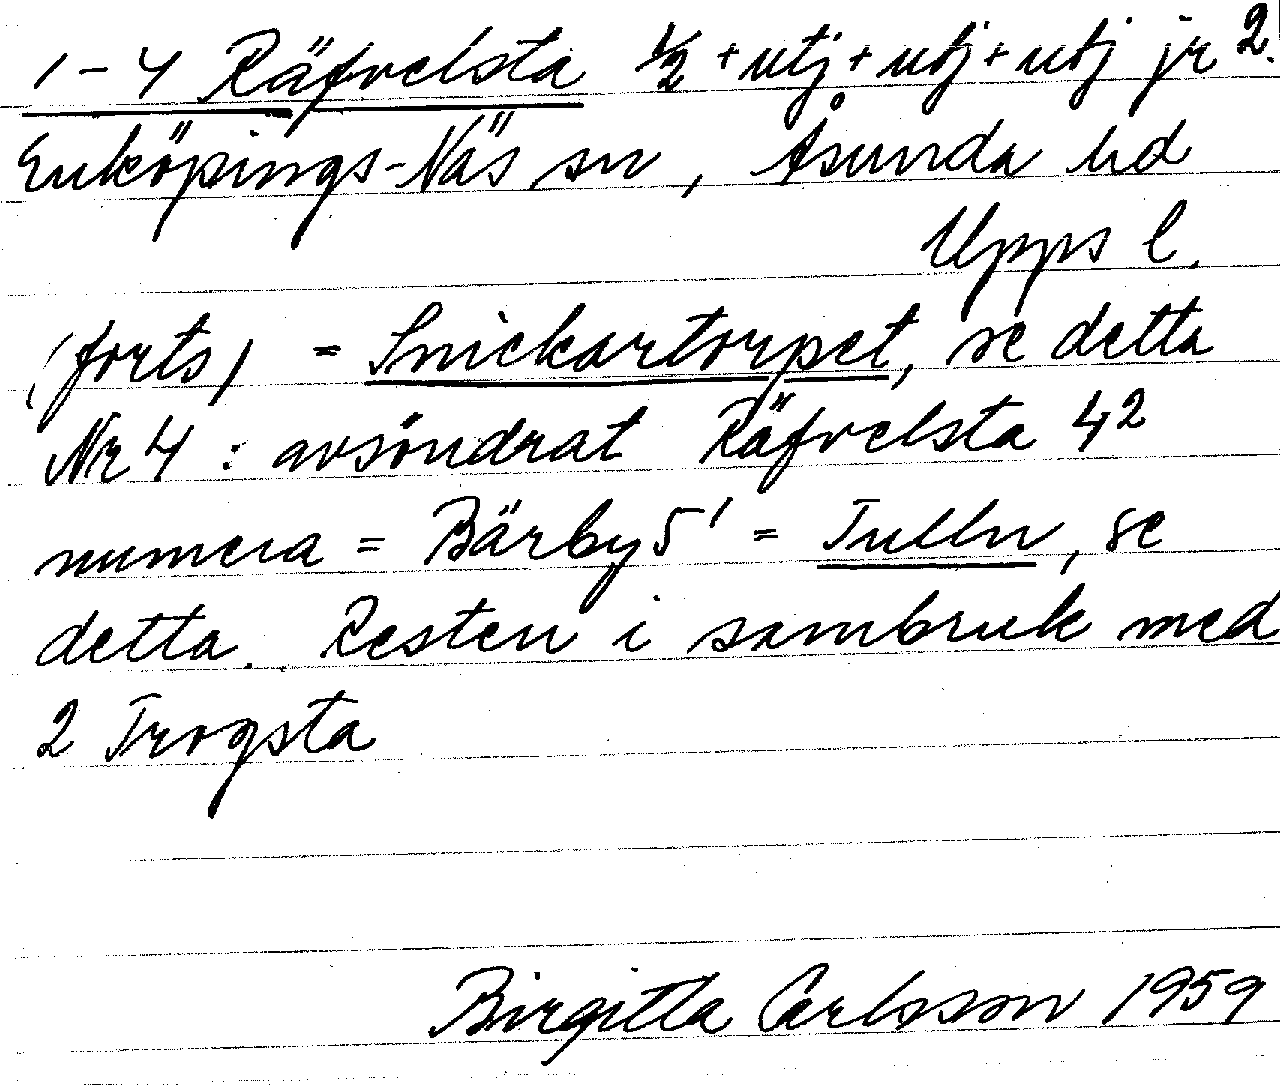 1-4 Räfvelsta 1/2 + utj + utj + utj jr 2.
Enköpings-Näs sn, Åsunda hd
Upps l.
(forts) = Snickartorpet, se detta
Nr 4 : avsöndrat Räfvelsta 4²
numera = Bärby 5¹ = Tulln, se
detta. Resten i sambruk med
2 Trogsta
Birgitta Carlsson 1959